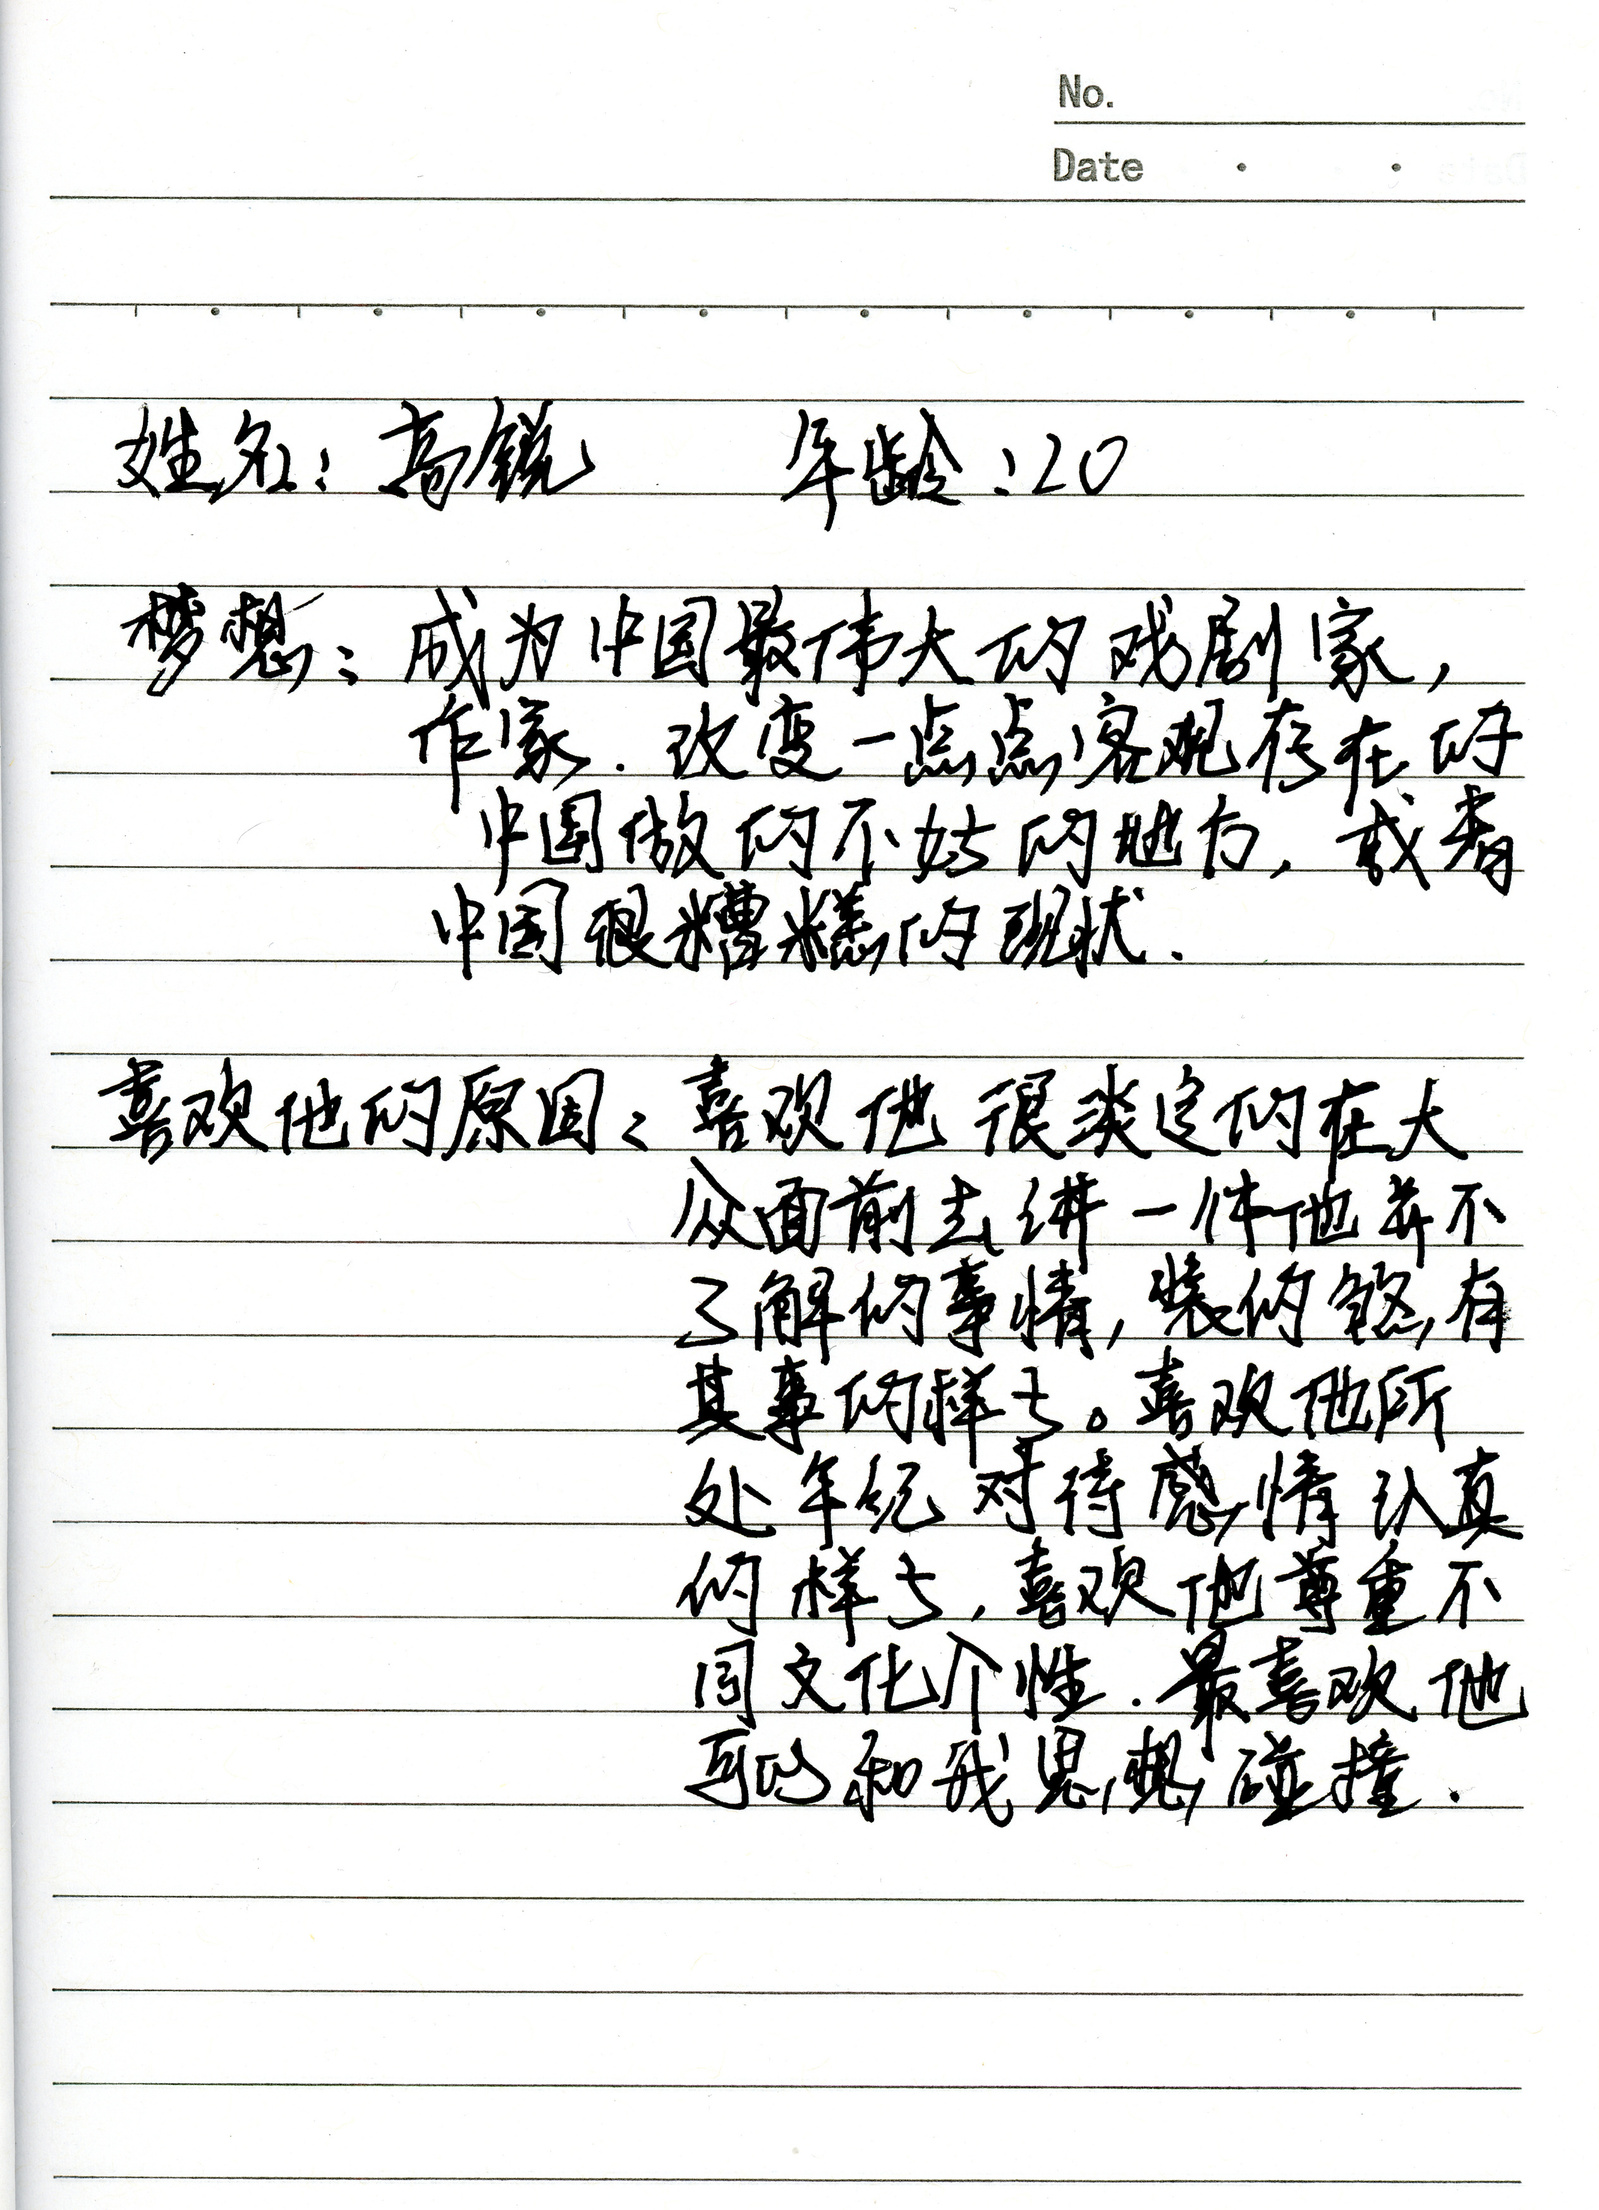 No.
Date
姓名：高锐 年龄：20
梦想：成为中国最伟大的戏剧家，
作家．改变一点点客观存在的
中国做的不好的地方，或者
中国很糟糕的现状．
喜欢他的原因：喜欢他很淡定的在大
众面前去讲一件他并不
了解的事情，装的煞有
其事的样子。喜欢他所
处年纪对待感情认真
的样子，喜欢他尊重不
同文化个性．最喜欢他
可以和我思想碰撞．